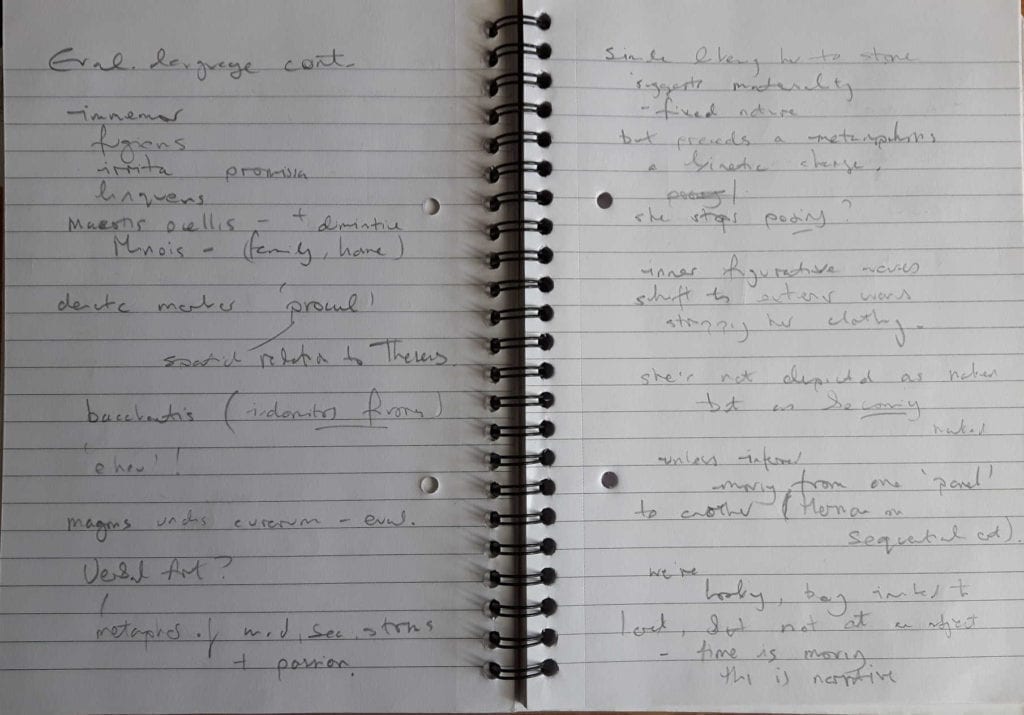 Eval. language cont.
immemor
fugiens
irrita promissa
linquens
Maestis ocellis - + diminutive
Minois - (family, home)
deictic marker 'procul'
spatial relation to Theseus
bacchantis (indomitos furores)
'eheu'!
magnis undis curarum - eval.
Verbal Art?
metaphors of wind, sea, storms
+ passion.
Simile likening her to stone
suggests materiality
- fixed nature
but precedes a metamorphosis
a kinetic change.
she stops posing?
inner figurative waves
shift to external waves
stripping her clothing.
she's not depicted as naked
but as becoming
naked
unless inferred
moving from one 'panel'
to another (Herman on
sequential art).
we're
looking, being invited to
look, but not at an object
- time is moving
this is narrative